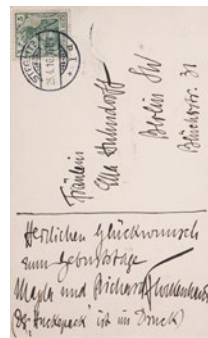 STEGLITZ
25.4.10
Fräulein
Ella
Berlin SW
Blücherstr. 31
Herzlichen Glückwunsch
zum Geburtstage
Magda und Richard
(Der "Huckepack" ist im Druck)